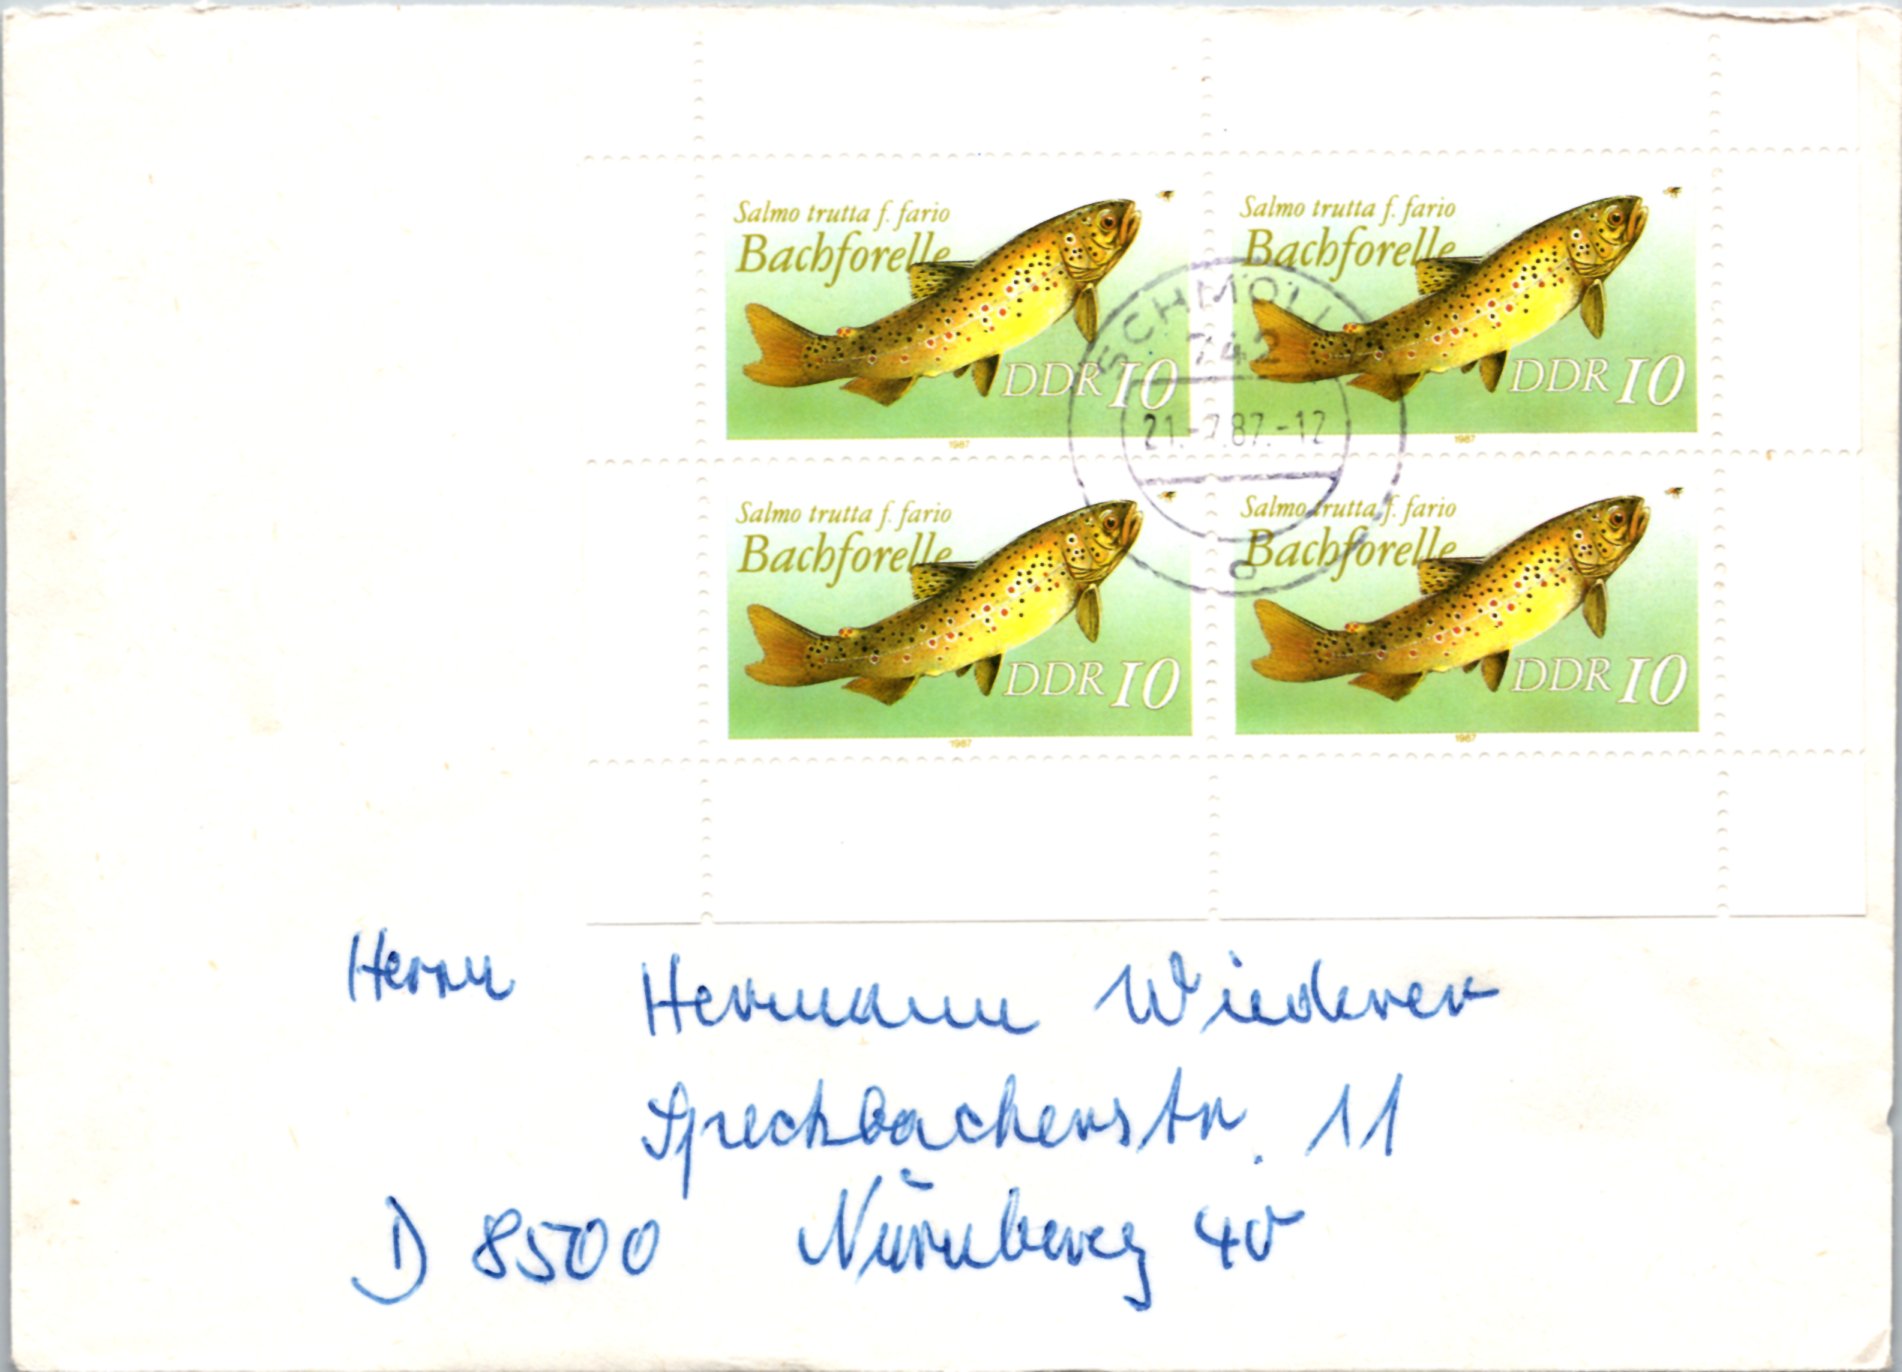 Salmo trutta f. fario
Bachforelle
DDR 10
1987
Salmo trutta f. fario
Bachforelle
DDR 10
1987
SCHMÖLLN
742
21.-7.87.-12
o
Salmo trutta f. fario
Bachforelle
DDR 10
1987
Salmo trutta f. fario
Bachforelle
DDR 10
1987
Herrn Hermann Wiederer
Speckbacherstr. 11
D 8500 Nürnberg 40